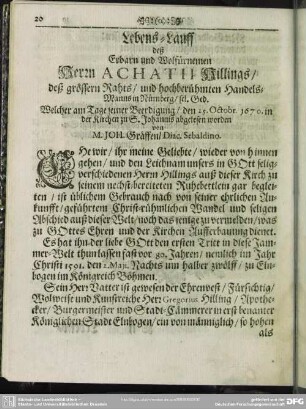 20
Lebens-Lauff
deß
Erbarn und Wolfürnemen
Herrn ACHATII Hillings/
deß grössern Rahts/ und hochberühmten Handels-
Manns in Nürnberg/ sel. Ged.
Welcher am Tage seiner Beerdigung/ den 25. Octobr. 1670. in
der Kirchen zu S. Johannis abgelesen worden
von
M. JOH. Gräffen/ Diac. Sebaldino.
EHe wir/ ihr meine Geliebte/ wieder von hinnen
gehen/ und den Leichnam unsers in Gott selig-
verschiedenen Herrn Hillings auß dieser Kirch zu
seinem nechst-bereiteten Ruhebettlein gar beglei-
ten/ ist üblichem Gebrauch nach von seiner ehrlichen An-
kunfft/ geführtem Christ-rühmlichen Wandel und seligen
Abschied auß dieser Welt/ noch das jenige zu vermelden/ was
zu GOttes Ehren und der Kirchen Aufferbauung dienet.
Es hat ihn der liebe GOtt den ersten Tritt in diese Jam-
mer-Welt thun lassen fast vor 80. Jahren/ nemlich im Jahr
Christi 1591. den 2. Maji. Nachts um halber zwölff/ zu Eln-
bogen im Königreich Böhmen.
Sein Herr Vatter ist gewesen der Ehrenvest/ Fürsichtig/
Wolweise und Kunstreiche Herr Gregorius Hilling/ Apothe-
cker/ Burgermeister und Stadt-Cämmerer in erst benanter
Königlichen Stadt Elnbogen/ ein von männiglich/ so hohen
als